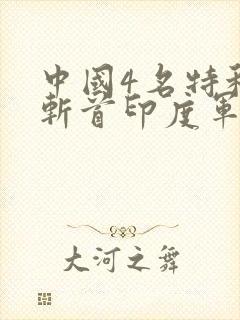 中國4名特
斬首印度軍
大河之舞